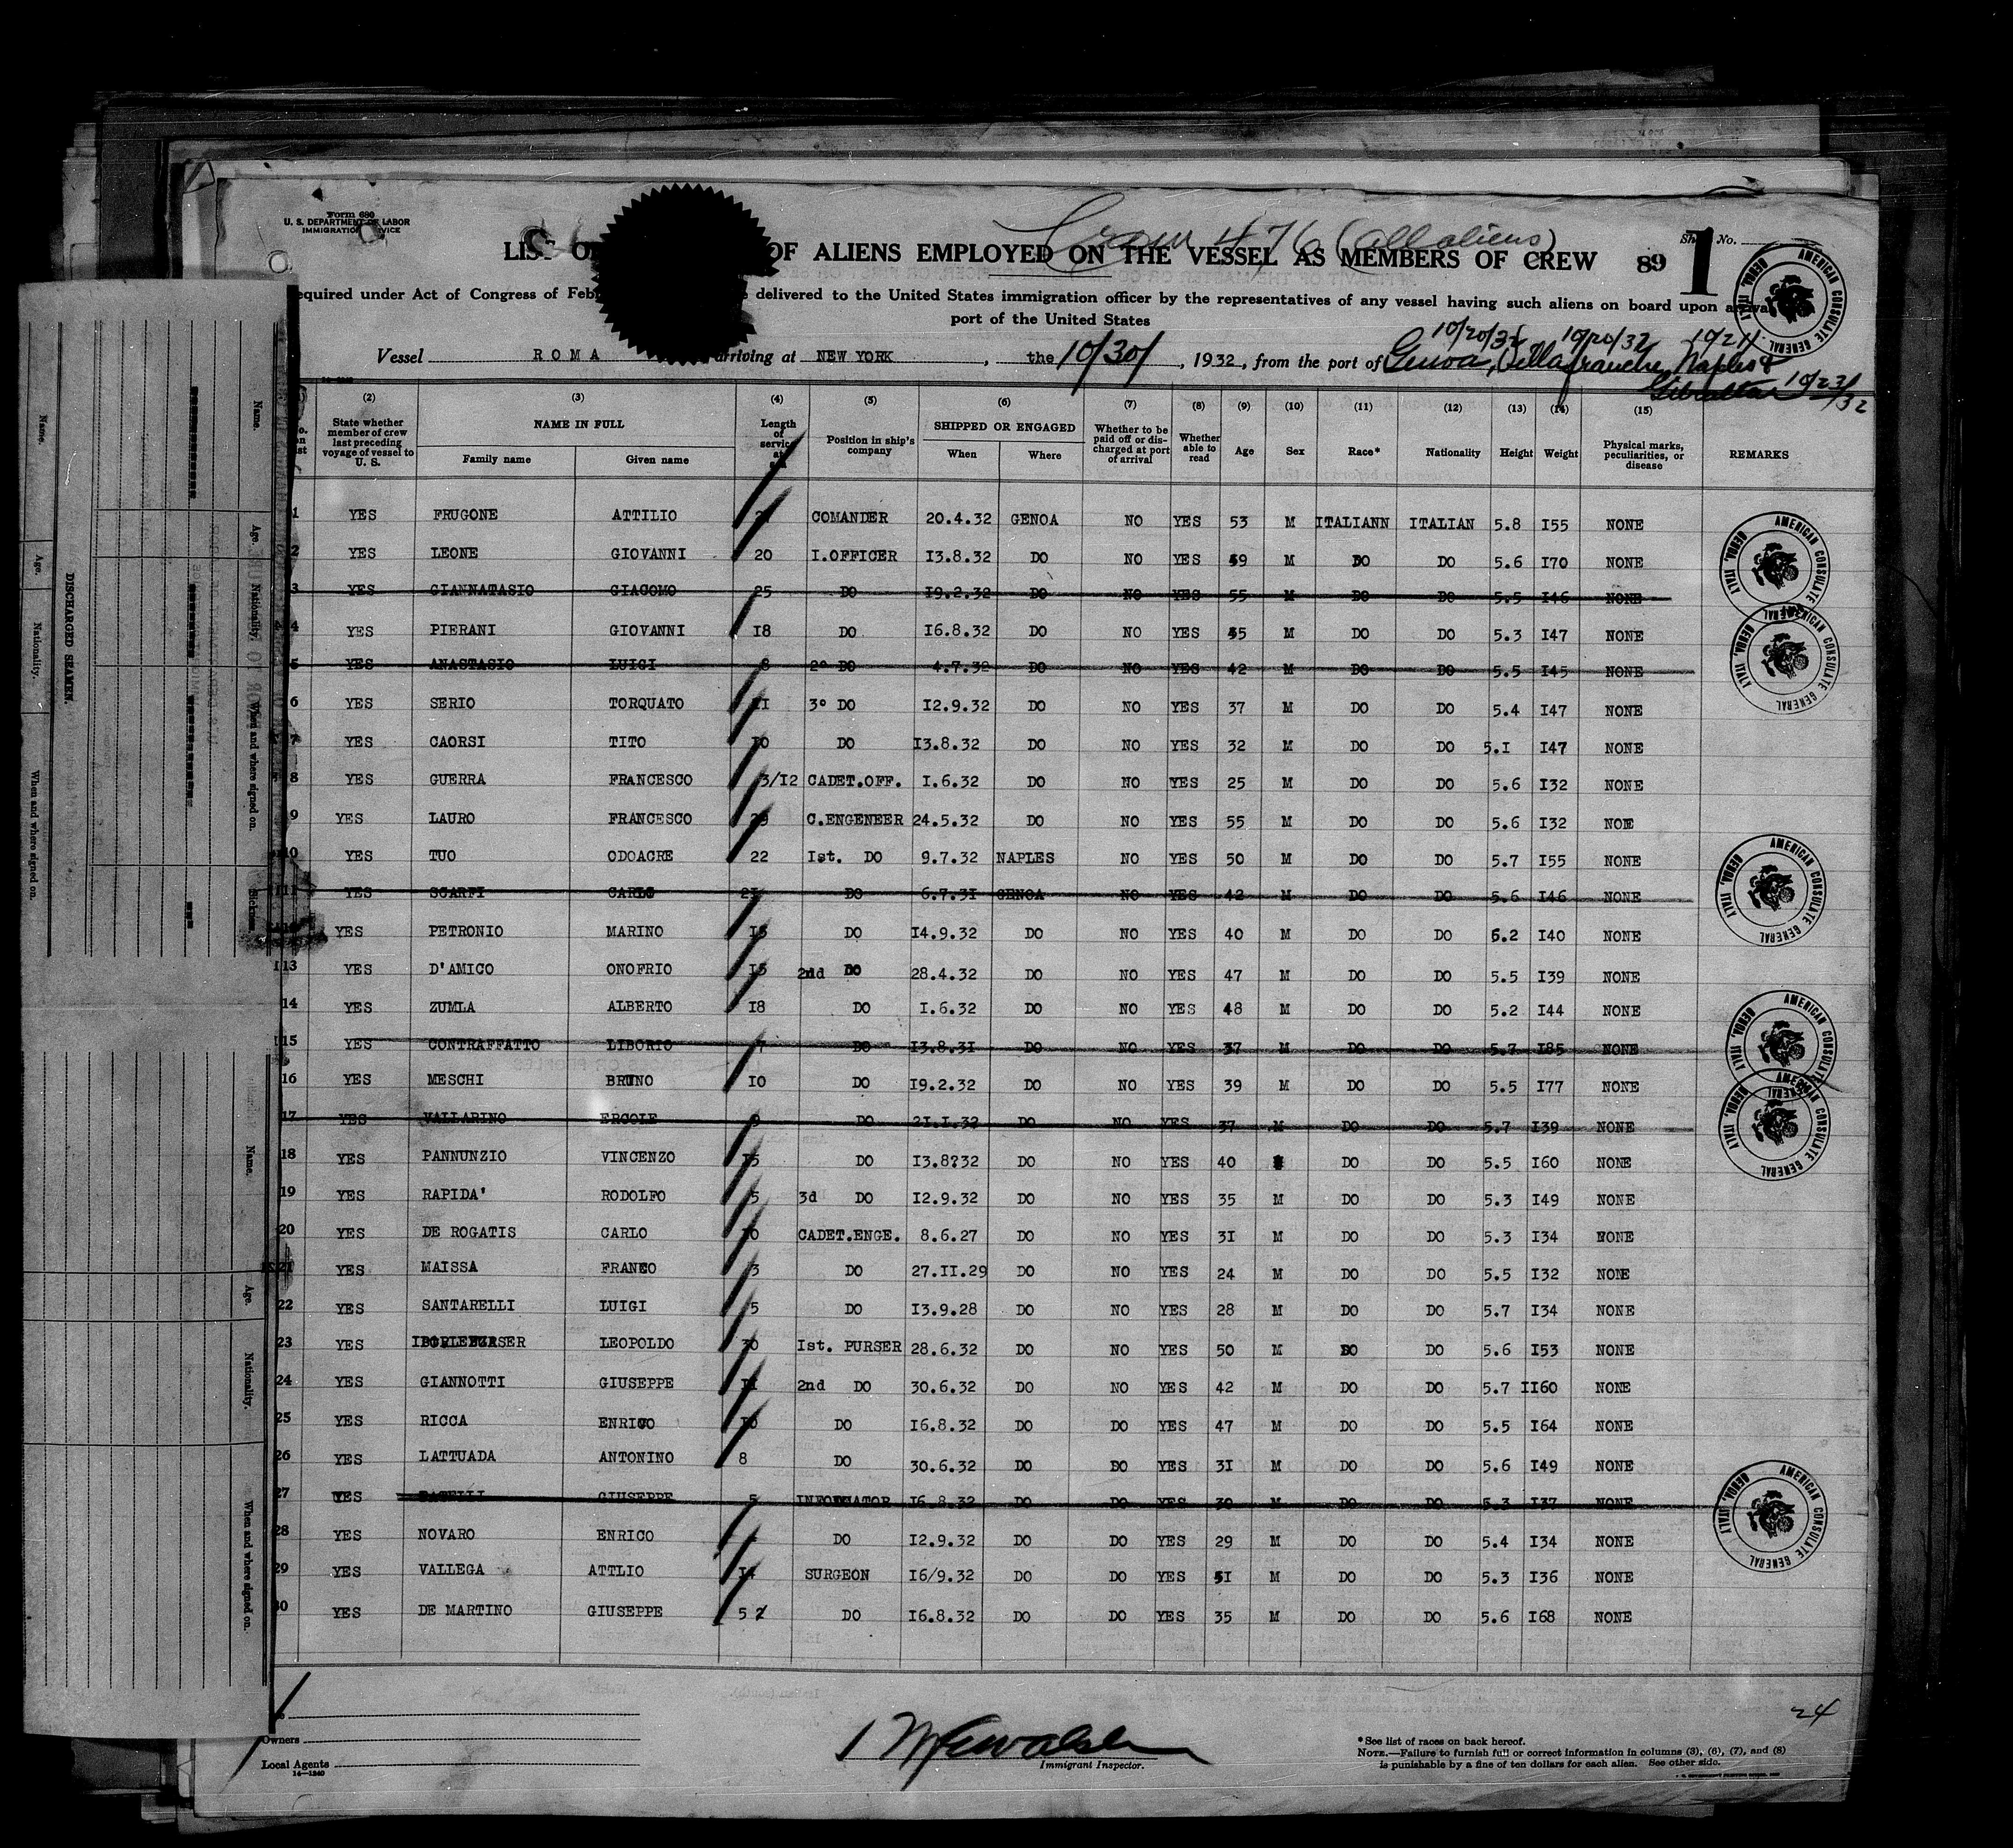 Form 680
U. S. DEPARTMENT OF LABOR
IMMIGRATION SERVICE
Crew 476 (all aliens)
LIST OF ALIENS EMPLOYED ON THE VESSEL AS MEMBERS OF CREW 89 1
No.
equired under Act of Congress of Feb delivered to the United States immigration officer by the representatives of any vessel having such aliens on board upon arrival
port of the United States
10/20/32 10/20/32 10/21
Vessel ROMA arriving at NEW YORK, the 10/30/, 1932, from the port of Genoa, Villafranche, Naples &
Gibraltar 10/23/32
(2) (3) (4) (5) (6) (7) (8) (9) (10) (11) (12) (13) (14) (15)
State whether member of crew last preceding voyage of vessel to U. S. NAME IN FULL Length of service at Position in ship's company SHIPPED OR ENGAGED Whether to be paid off or discharged at port of arrival Whether able to read Age Sex Race* Nationality Height Weight Physical marks, peculiarities, or disease REMARKS
Family name Given name When Where
1 YES FRUGONE ATTILIO COMANDER 20.4.32 GENOA NO YES 53 M ITALIANN ITALIAN 5.8 I55 NONE
2 YES LEONE GIOVANNI 20 I.OFFICER I3.8.32 DO NO YES 49 M DO DO 5.6 I70 NONE
3 YES GIANNATASIO GIACOMO 25 DO I9.2.32 DO NO YES 55 M DO DO 5.5 I46 NONE
4 YES PIERANI GIOVANNI I8 DO I6.8.32 DO NO YES 45 M DO DO 5.3 I47 NONE
5 YES ANASTASIO LUIGI 8 2° DO 4.7.32 DO NO YES 42 M DO DO 5.5 I45 NONE
6 YES SERIO TORQUATO II 3° DO I2.9.32 DO NO YES 37 M DO DO 5.4 I47 NONE
7 YES CAORSI TITO I0 DO I3.8.32 DO NO YES 32 M DO DO 5.I I47 NONE
8 YES GUERRA FRANCESCO 3/I2 CADET.OFF. I.6.32 DO NO YES 25 M DO DO 5.6 I32 NONE
9 YES LAURO FRANCESCO 29 C.ENGENEER 24.5.32 DO NO YES 55 M DO DO 5.6 I32 NOE
10 YES TUO ODOACRE 22 Ist. DO 9.7.32 NAPLES NO YES 50 M DO DO 5.7 I55 NONE
11 YES SCARFI CARLO 2I DO 6.7.3I GENOA NO YES 42 M DO DO 5.6 I46 NONE
YES PETRONIO MARINO I5 DO I4.9.32 DO NO YES 40 M DO DO 5.2 I40 NONE
13 YES D'AMICO ONOFRIO I5 2nd DO 28.4.32 DO NO YES 47 M DO DO 5.5 I39 NONE
14 YES ZUMLA ALBERTO I8 DO I.6.32 DO NO YES 48 M DO DO 5.2 I44 NONE
15 YES CONTRAFFATTO LIBORIO 7 DO I3.8.3I DO NO YES 37 M DO DO 5.7 I85 NONE
16 YES MESCHI BRUNO I0 DO I9.2.32 DO NO YES 39 M DO DO 5.5 I77 NONE
17 YES VALLARINO ERCOLE 9 DO 2I.I.32 DO NO YES 37 M DO DO 5.7 I39 NONE
18 YES PANNUNZIO VINCENZO I5 DO I3.8?32 DO NO YES 40 DO DO 5.5 I60 NONE
19 YES RAPIDA' RODOLFO 5 3d DO I2.9.32 DO NO YES 35 M DO DO 5.3 I49 NONE
20 YES DE ROGATIS CARLO I0 CADET.ENGE. 8.6.27 DO NO YES 3I M DO DO 5.3 I34 NONE
21 YES MAISSA FRANCO 3 DO 27.II.29 DO NO YES 24 M DO DO 5.5 I32 NONE
22 YES SANTARELLI LUIGI 5 DO I3.9.28 DO NO YES 28 M DO DO 5.7 I34 NONE
23 YES LEOPOLDO 30 Ist. PURSER 28.6.32 DO NO YES 50 M DO DO 5.6 I53 NONE
24 YES GIANNOTTI GIUSEPPE II 2nd DO 30.6.32 DO NO YES 42 M DO DO 5.7 II60 NONE
25 YES RICCA ENRICO I0 DO I6.8.32 DO DO YES 47 M DO DO 5.5 I64 NONE
26 YES LATTUADA ANTONINO 8 DO 30.6.32 DO DO YES 3I M DO DO 5.6 I49 NONE
27 YES GIUSEPPE 5 I6.8.32 DO DO YES 30 M DO DO 5.3 I37 NONE
28 YES NOVARO ENRICO DO I2.9.32 DO DO YES 29 M DO DO 5.4 I34 NONE
29 YES VALLEGA ATTLIO I4 SURGEON I6/9.32 DO DO YES 5I M DO DO 5.3 I36 NONE
30 YES DE MARTINO GIUSEPPE 5 DO I6.8.32 DO DO YES 35 M DO DO 5.6 I68 NONE
24
Owners
Local Agents
14—1240
Immigrant Inspector.
*See list of races on back hereof.
NOTE.—Failure to furnish full or correct information in columns (3), (6), (7), and (8)
is punishable by a fine of ten dollars for each alien. See other side.
AMERICAN CONSULATE GENERAL GENOA, ITALY
AMERICAN CONSULATE GENERAL GENOA, ITALY
AMERICAN CONSULATE GENERAL GENOA, ITALY
AMERICAN CONSULATE GENERAL GENOA, ITALY
AMERICAN CONSULATE GENERAL GENOA, ITALY
AMERICAN CONSULATE GENERAL GENOA, ITALY
AMERICAN CONSULATE GENERAL GENOA, ITALY
DISCHARGED SEAMEN.
Name. Age. Nationality. When and where signed on.
Name. Age. Nationality. When and where signed on.
Name. Age. Nationality. When and where signed on.